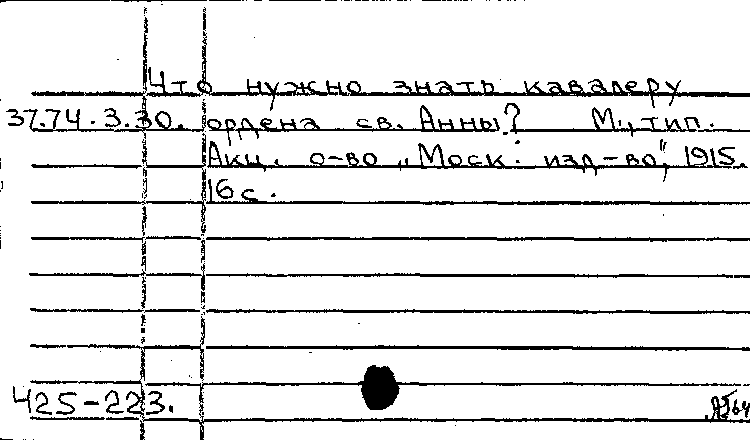 Что нужно знать кавалеру
37.74.3.30. ордена св. Анны? М., тип.
Акц. о-во „Моск. изд-во", 1915.
16 с.
425-223.